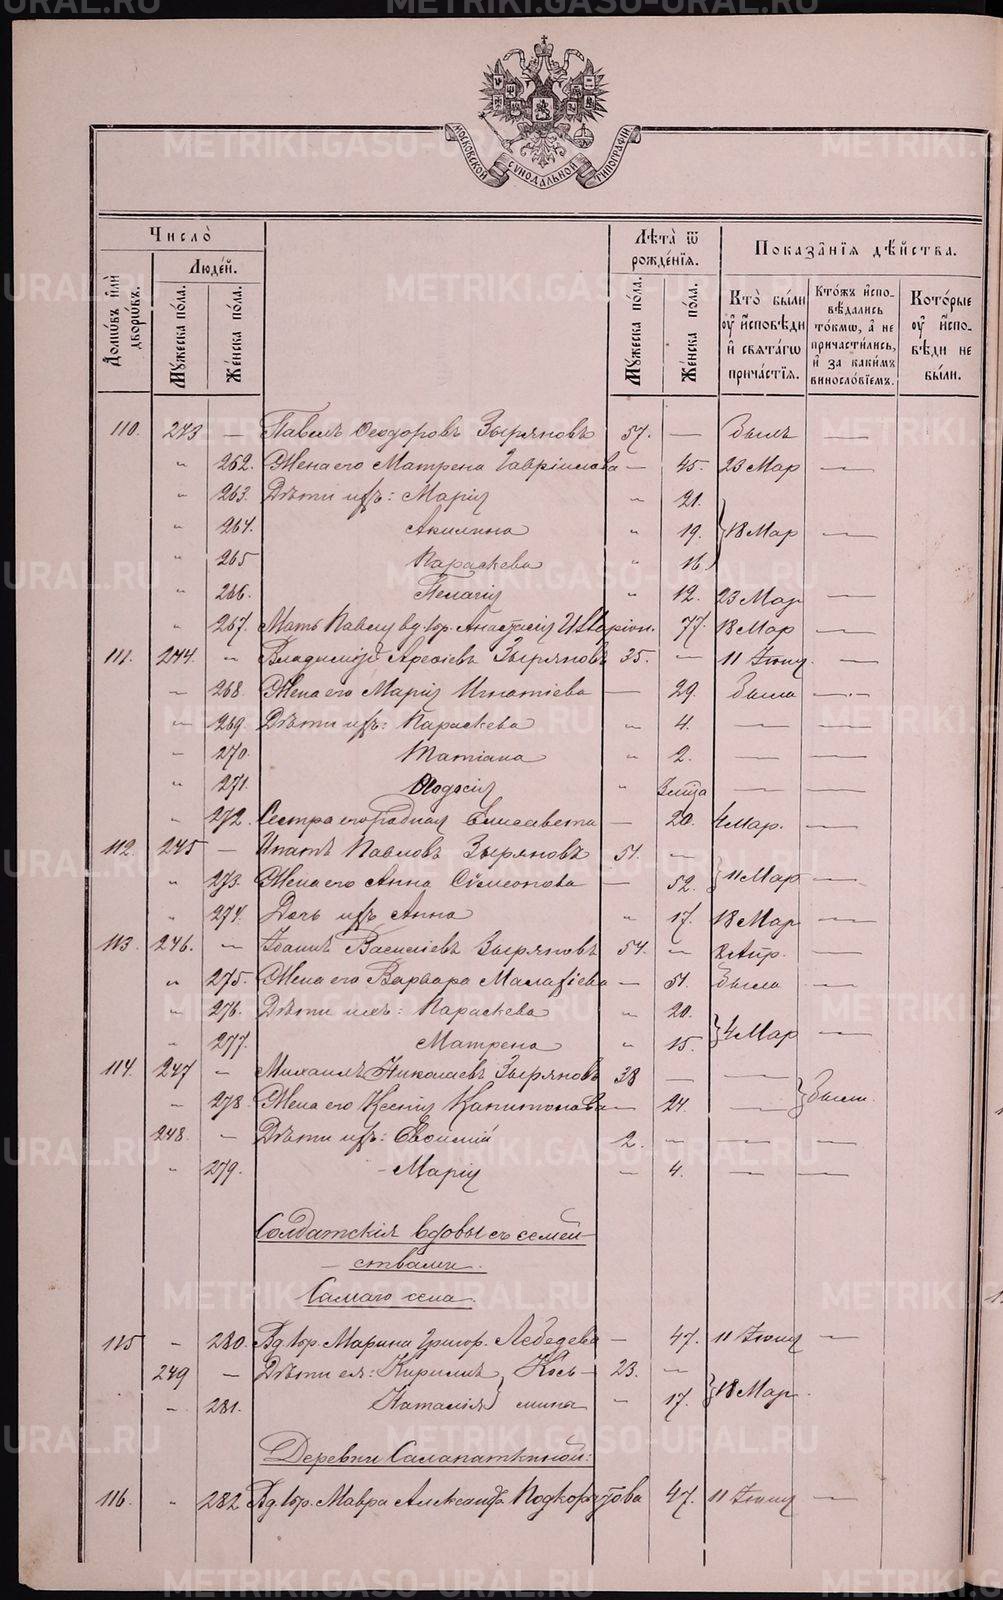 МОСКОВСКОЙ СУНОДАЛЬНОЙ ТИПОГРАФІИ
Число̀
Домѡвъ и҆лѝ дворѡвъ.
Люде́й.
Мꙋжеска по́ла.
Же́нска по́ла.
Лѣта̀ ѿ рожде́нїѧ.
Мꙋжеска по́ла.
Же́нска по́ла.
Показа̑нїѧ дѣ́йства.
Кто̀ бы́ли оу҆ и҆́сповѣди и҆ свѧта́гѡ прича́стїѧ.
Кто́жъ и҆спо-вѣ́дались то́кмѡ, а҆ не причасти́лись, и҆ за каки́мъ винослові́емъ.
Кото́рые оу҆ и҆́спо-вѣди не бы́ли.
110. 243 — Павелъ Ѳеодоровъ Зыряновъ 57. — былъ —
" 262. Жена его Матрена Гавріилова — 45. 23 Мар —
" 263. Дѣти ихъ: Марія " 21.
" 264. Акилина " 19. 18 Мар —
" 265 Параскева " 16.
" 266. Пелагія " 12. 23 Мар —
" 267. Мать Павла вд. Анастасія Иларіон. 77. 18 Мар —
111. 244. " Владимиръ Зыряновъ 35. — 11 Іюня —
— 268. Жена его Марія Игнатіева — 29. была —
" 269. Дѣти ихъ: Параскева " 4. — —
" 270. Татіана " 2. — —
" 271. Ѳеодосія " — —
" 272. Сестра его родная Елисавета — 20. 4 Мар. —
112. 245 — Ипатъ Павловъ Зыряновъ 51. —
" 273. Жена его Анна Сѵмеонова — 52. 11 Мар —
" 274. Дочь ихъ Анна " 17. 18 Мар —
113. 246. — Іоаннъ Василіевъ Зыряновъ 54. " Апр. —
" 275. Жена его Варвара Малахіева — 51. была —
" 276. Дѣти ихъ: Параскева " 20.
" 277. Матрена " 15. 4 Мар —
114. 247 — Михаилъ Николаевъ Зыряновъ 38 — —
— 278. Жена его Ксенія Капитонова — 24. — были.
248. — Дѣти ихъ: Евѳимій 2. — — —
" 279. Марія — 4. — —
Солдатскія вдовы съ семей-
ствами.
Самаго села.
115 — 280. Вд. Марина Григор. Лебедева — 47. 11 Іюня —
249 — Дѣти ея: Кириллъ, Козь- 23. —
— 281. Наталія мина — 17. 18 Мар.
Деревни Салапаткиной:
116. " 282 Вд. Мавра Александр. Подкорытова 47. 11 Іюня —
METRIKI.GASO-URAL.RU